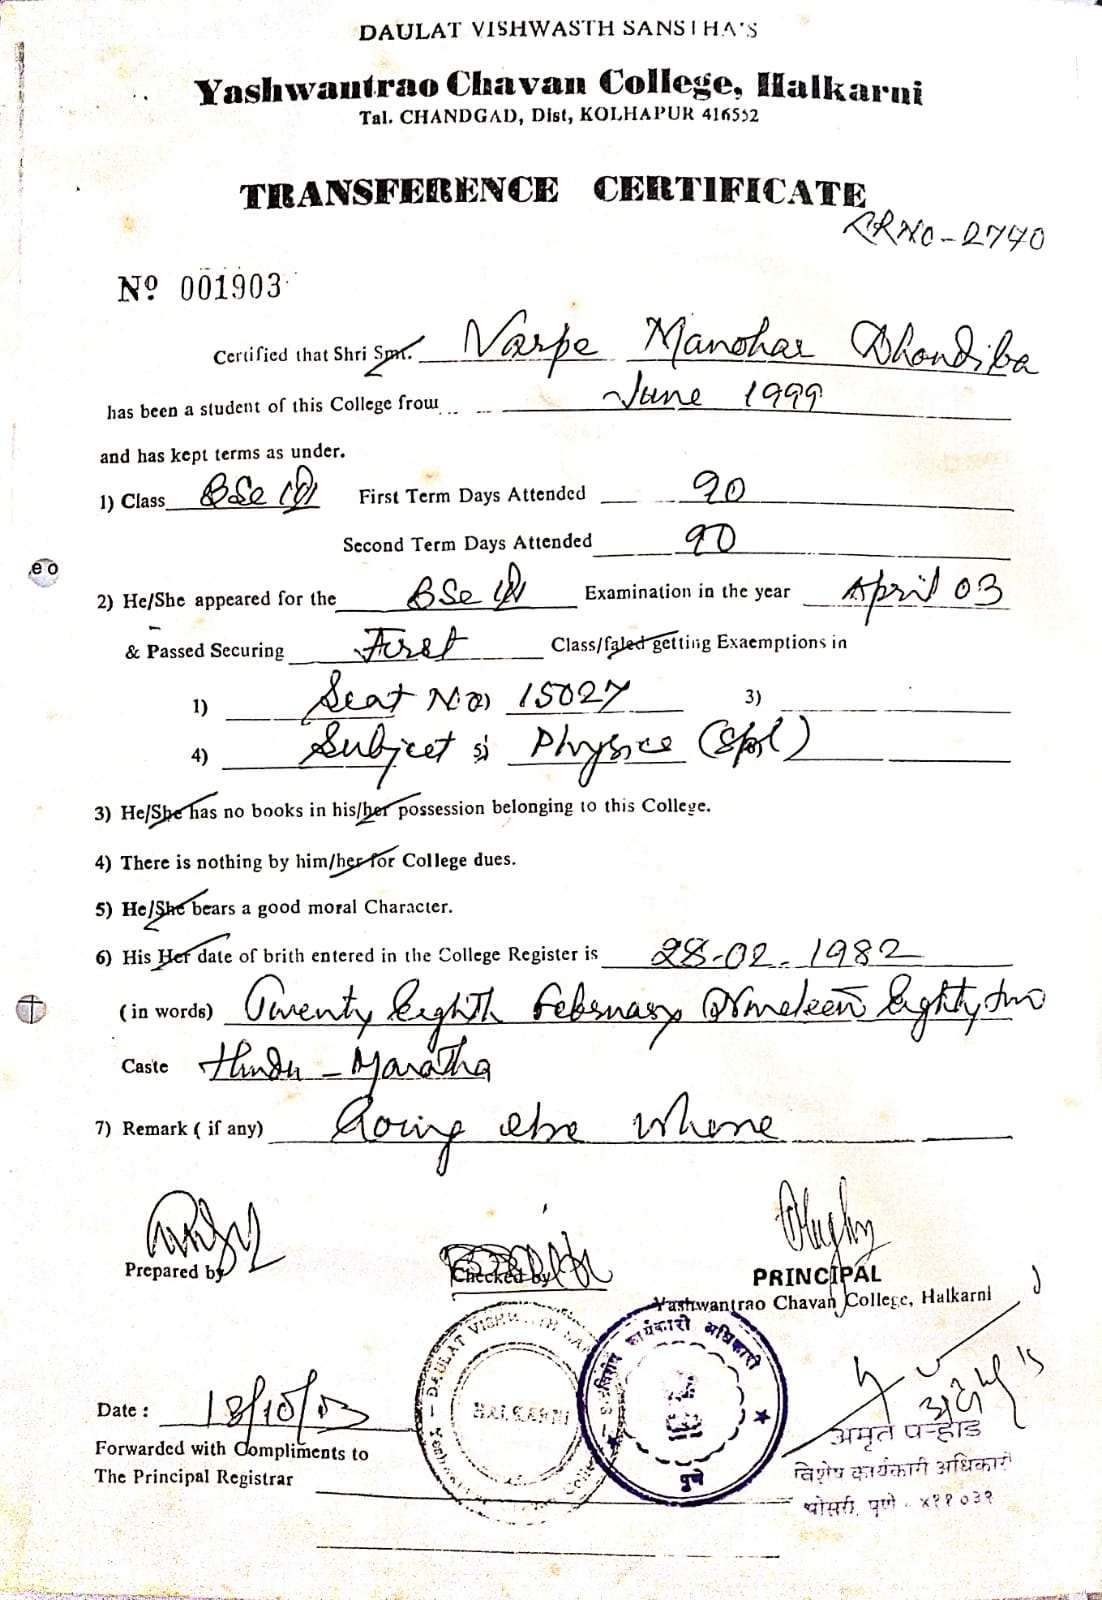 DAULAT VISHWASTH SANSTHA'S
Yashwantrao Chavan College, Halkarni
Tal. CHANDGAD, Dist, KOLHAPUR 416552
TRANSFERENCE CERTIFICATE
RNO-2740
Nº 001903
Certified that Shri Smt. Varpe Manohar Dhondiba
has been a student of this College from June 1999
and has kept terms as under.
1) Class BSc III First Term Days Attended 90
Second Term Days Attended 90
2) He/She appeared for the BSc III Examination in the year April 03
& Passed Securing First Class/faled getting Exaemptions in
1) Seat No) 15027 3)
4) Subject :) Physics (Spl)
3) He/She has no books in his/her possession belonging to this College.
4) There is nothing by him/her for College dues.
5) He/She bears a good moral Character.
6) His Her date of brith entered in the College Register is 28-02-1982
(in words) Twenty Eighth February Nineteen Eighty two
Caste Hindu - Maratha
7) Remark ( if any) Going else where
Prepared by
Checked by
PRINCIPAL
Yashwantrao Chavan College, Halkarni
DAULAT VISHW
HALKARNI
कार्यकारी अधिकारी
पुणे
Date : 18/10/03
Forwarded with Compliments to
The Principal Registrar
अमृत पऱ्हाड
विशेष कार्यकारी अधिकारी
भोसरी, पुणे - ४११०३९